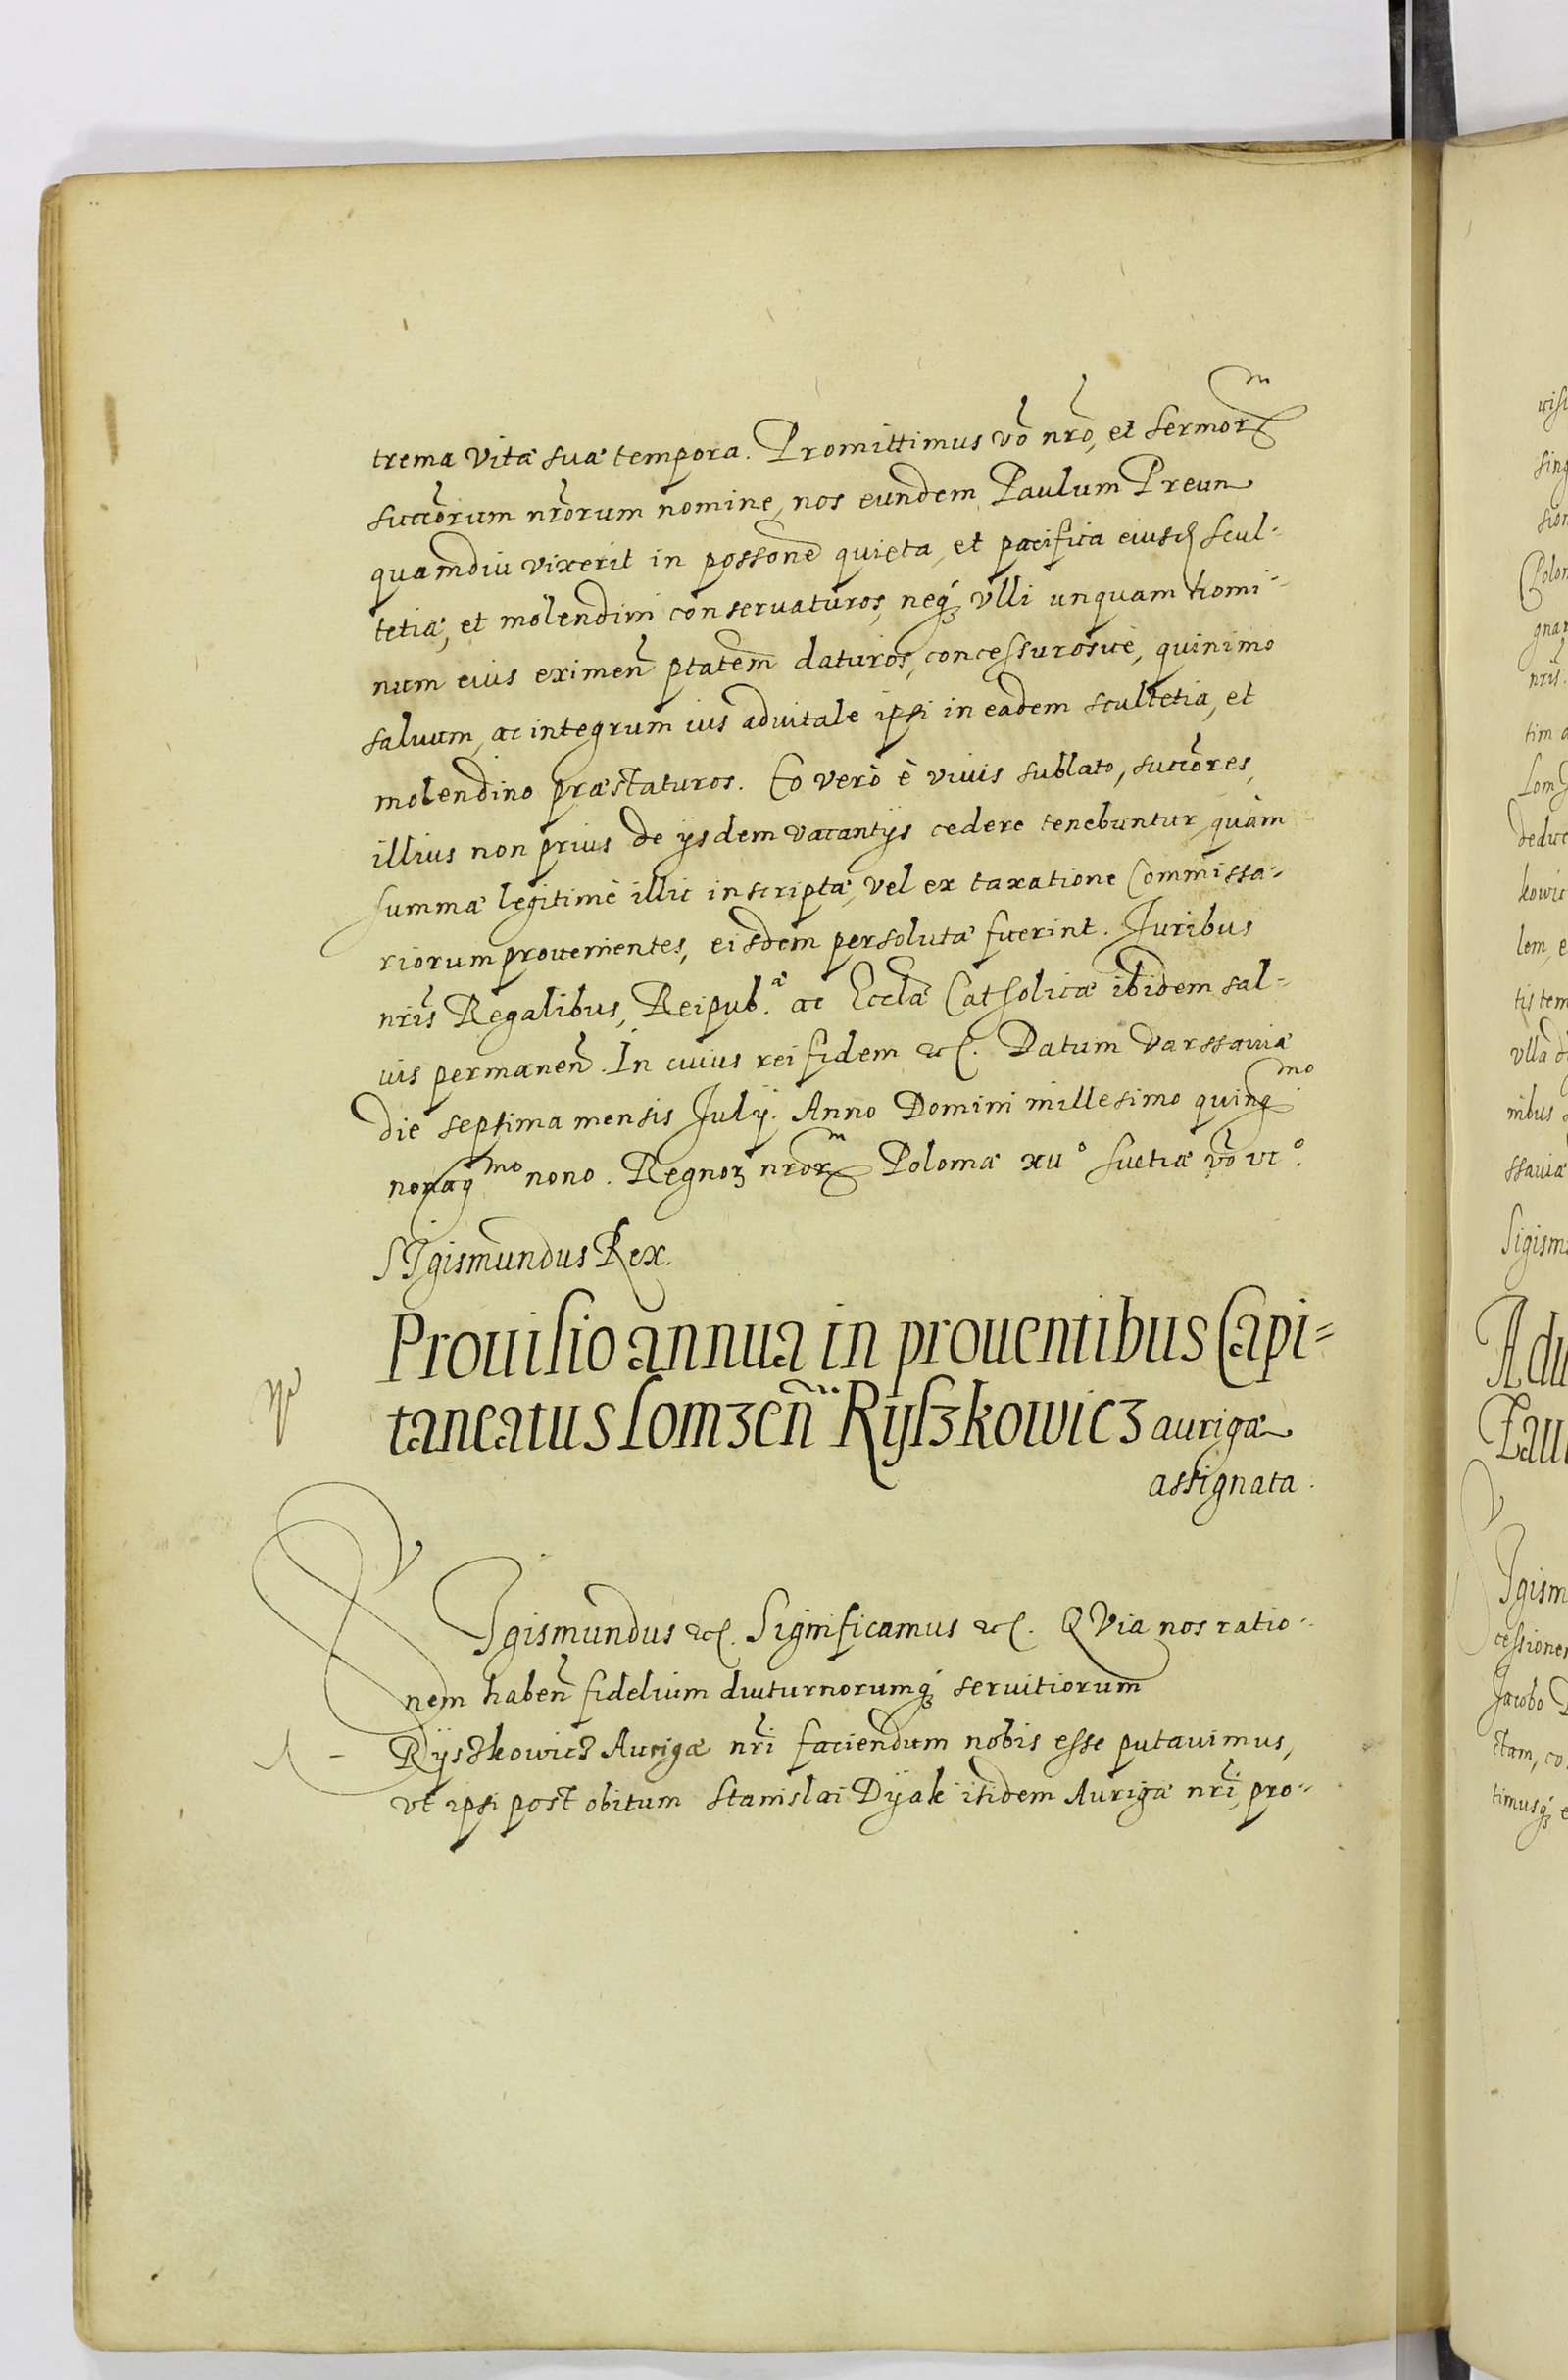 trema vitæ suæ tempora. Promittimus vo nro, et sermorm
succorum nrorum nomine, nos eundem Paulum Preun
quamdiu vixerit in possone quieta, et pacifica eiusd scul-
tetiæ, et molendini conseruaturos, neq ulli unquam homi-
num eius eximen ptatem daturos, concessurosue, quinimo
saluum, ac integrum ius aduitale ipsi in eadem scultetia, et
molendino præstaturos. Eo verò è viuis sublato, succores,
illius non prius de ijsdem vacantijs cedere tenebuntur, quàm
summæ legitimè illic inscriptæ, vel ex taxatione Commissa-
riorum prouenientes, eisdem persolutæ fuerint. Juribus
nris Regalibus, Reipub.æ ac Ecclæ Catholicæ ibidem sal-
uis permanen. In cuius rei fidem etc. Datum Varssauiæ
die septima mensis Julij. Anno Domini millesimo quingmo
nonagmo nono. Regnoꝝ nrorm Poloniæ xuº Suetiæ vo viº.
SIgismundus Rex.
Prouisio annua in prouentibus Capi-
taneatus Lomzen Rijszkowicz aurigæ
assignata.
SIgismundus etc. Significamus etc. QVia nos ratio-
nem haben fidelium diuturnorumq seruitiorum
Rijszkowicz Aurigæ nri faciendum nobis esse putauimus,
vt ipsi post obitum Stanislai Dijak itidem Aurigæ nri, pro-